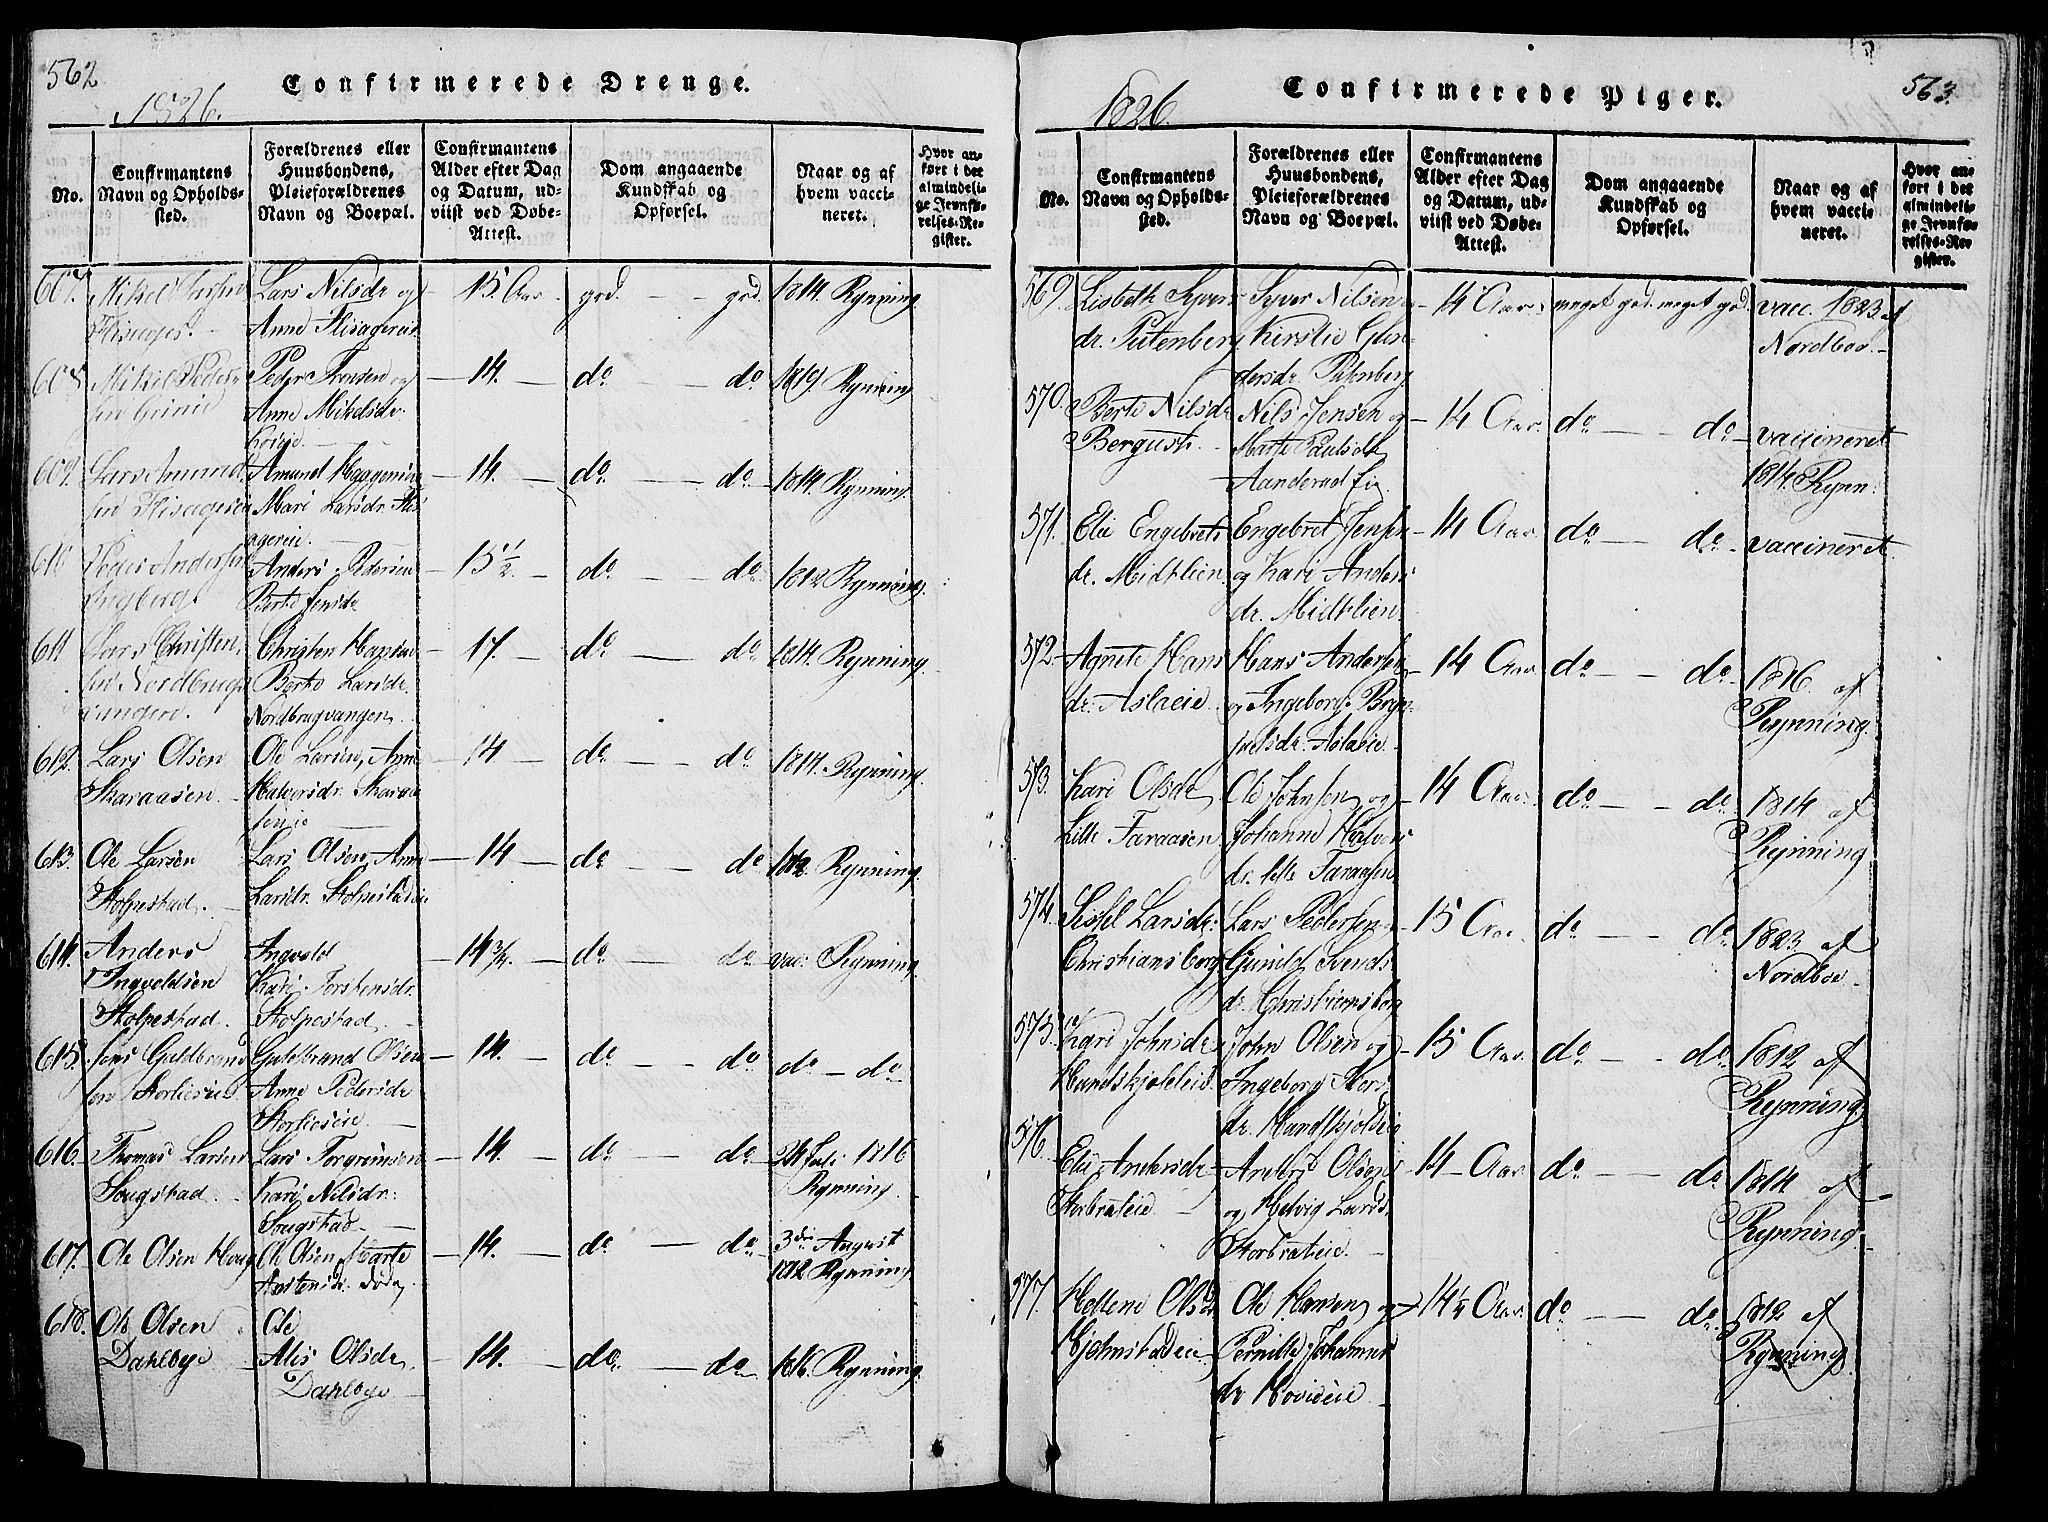 562
Confirmerede Drenge.
1826.
No.
Confirmantens Navn og Opholdssted.
Forældrenes eller Huusbondens, Pleieforældrenes Navn og Boepæl.
Confirmantens Alder efter Dag og Datum, udviist ved Døbe-Attest.
Dom angaaende Kundskab og Opførsel.
Naar og af hvem vaccineret.
Hvor anført i det almindelige Jevnførelses-Register.
607. Lars Nilsdr og 15 Aar. god. - - god. 1814. Rynning
Anne
608. Mikel Peder- Peder og 14. do do 1819 Rynning
sen Anne Mikelsdr.
609. Lars Amund Amund 14. do do 1814 Rynning.
sen Mari Larsdr.
610 Peder Andersen Anders Pedersen 15 1/2. do do 1812 Rynning.
Berte Jensdr
611 Lars Christen Christen 17. do do 1814. Rynning.
sen Nordbrug Berte Larsdr.
Nordbrugvangen
612. Lars Olsen Ole Larsen, Anne 14 do do 1814. Rynning.
Skaraasen Halvorsdr. Skaraa
senie
613. Ole Larsen Lars Olsen, Anne 14 do do 1812. Rynning.
Stolpestad. Larsdr. Stolpestadeie
614. Anders Ingvold 14 3/4. do do vac: Rynning
Ingvoldsen Kari Torstensdr.
Stolpestad. Stolpestad.
615. Jens Guldbrand Guldbrand Olsen 14. do do do - do
sen Storlieeie Anne Pedersdr
Storlieeie
616. Thomas Larsen Lars Torgrimsen 14. do do 24 Juli 1816
Sougstad Kari Nilsdr: Rynning.
Sougstad
617. Ole Olsen Houg Ole Olsen, Marte 14. do do 3die August
1812 Rynning
618. Ole Olsen Ole
Dahlbye Alis Olsdr 14. do do 1816. Rynning.
Dahlbye
563.
Confirmerede Piger.
1826.
No.
Confirmantens Navn og Opholdssted.
Forældrenes eller Huusbondens, Pleieforældrenes Navn og Boepæl.
Confirmantens Alder efter Dag og Datum, udviist ved Døbe-Attest.
Dom angaaende Kundskab og Opførsel.
Naar og af hvem vaccineret.
Hvor anført i det almindelige Jevnførelses-Register.
569. Lisbeth Syvers Syver Nilsen 14 Aar. meget god. meget god. vacc. 1823 af
dr. Putenberg Kirstie Gun- Nordboe.
dersdr. Putenberg
570. Berte Nilsdr Nils Jensen og 14 Aar. do do vaccineret
Bergust. Marte Paulsdr 1814 Rynn:
Aanderud Eie.
571. Elie Engebrets Engebret Jensen 14 Aar do do vaccineret.
dr. Midtlien og Kari Anders
dr. Midtlien.
572. Agnete Hans Hans Andersen 14 Aar do do 1816. af
dr. Aslaeie og Ingeborg Bryn- Rynning.
jelsdr. Aslaeie
573. Kari Olsdr Ole Johnsen og 14 Aar. do do 1814 af
Lille Taraasen Johanne Halvors Rynning
dr. lille Taraasen
574. Sissel Larsdr: Lars Pedersen 15 Aar. do do 1823 af
Christiansborg Gunild Svends Nordboe
dr. Christiansborg
575. Kari Johnsdr John Olsen og 15 Aar. do do 1812 af
Hundskjoleie Ingeborg Rynning.
dr. Hundskjoleie
576. Elie Andersdr Anders Olsen 14 Aar. do do 1814 af
Storbrateie og Helvig Larsd. Rynning.
Storbrateie.
577. Hellene Olsdr Ole Hansen og 14 1/2 Aar. do do 1812 af
Hjelmstadeie Pernille Johannes Rynning
dr Hovieie